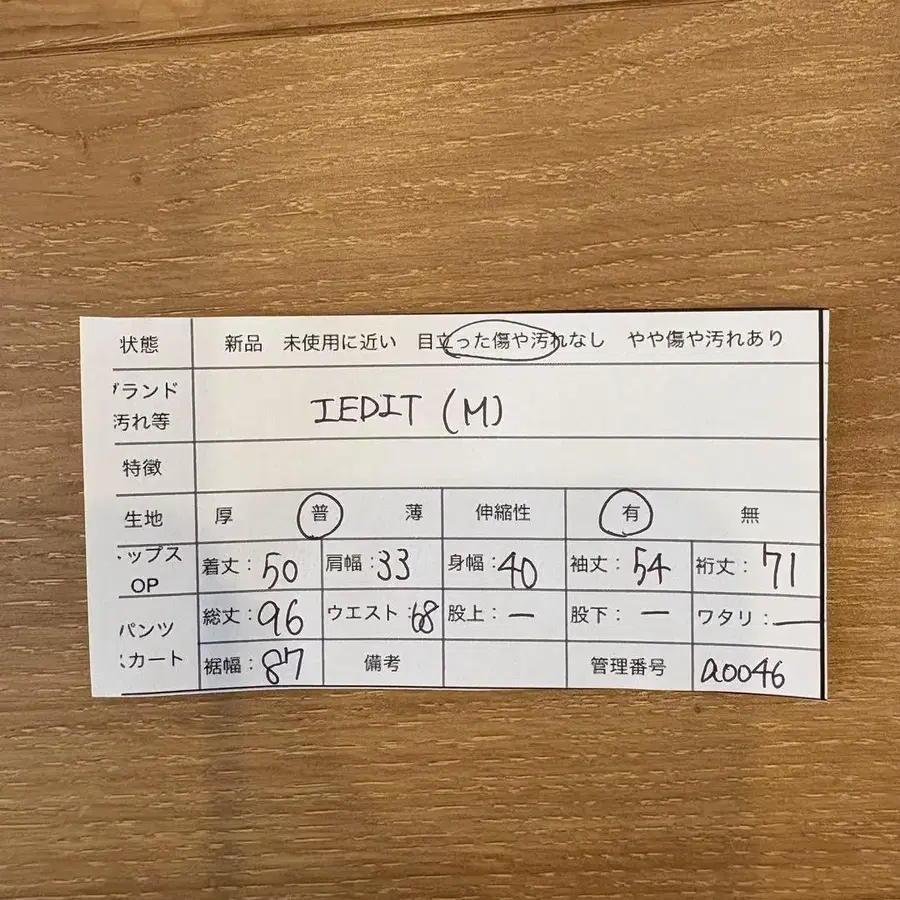 状態 新品 未使用に近い 目立った傷や汚れなし やや傷や汚れあり
ブランド
汚れ等 IEDIT (M)
特徴
生地 厚 普 薄 伸縮性 有 無
トップス
OP 着丈:50 肩幅:33 身幅:40 袖丈:54 裄丈:71
パンツ
スカート 総丈:96 ウエスト:68 股上:— 股下:— ワタリ:—
裾幅:87 備考 管理番号 a0046